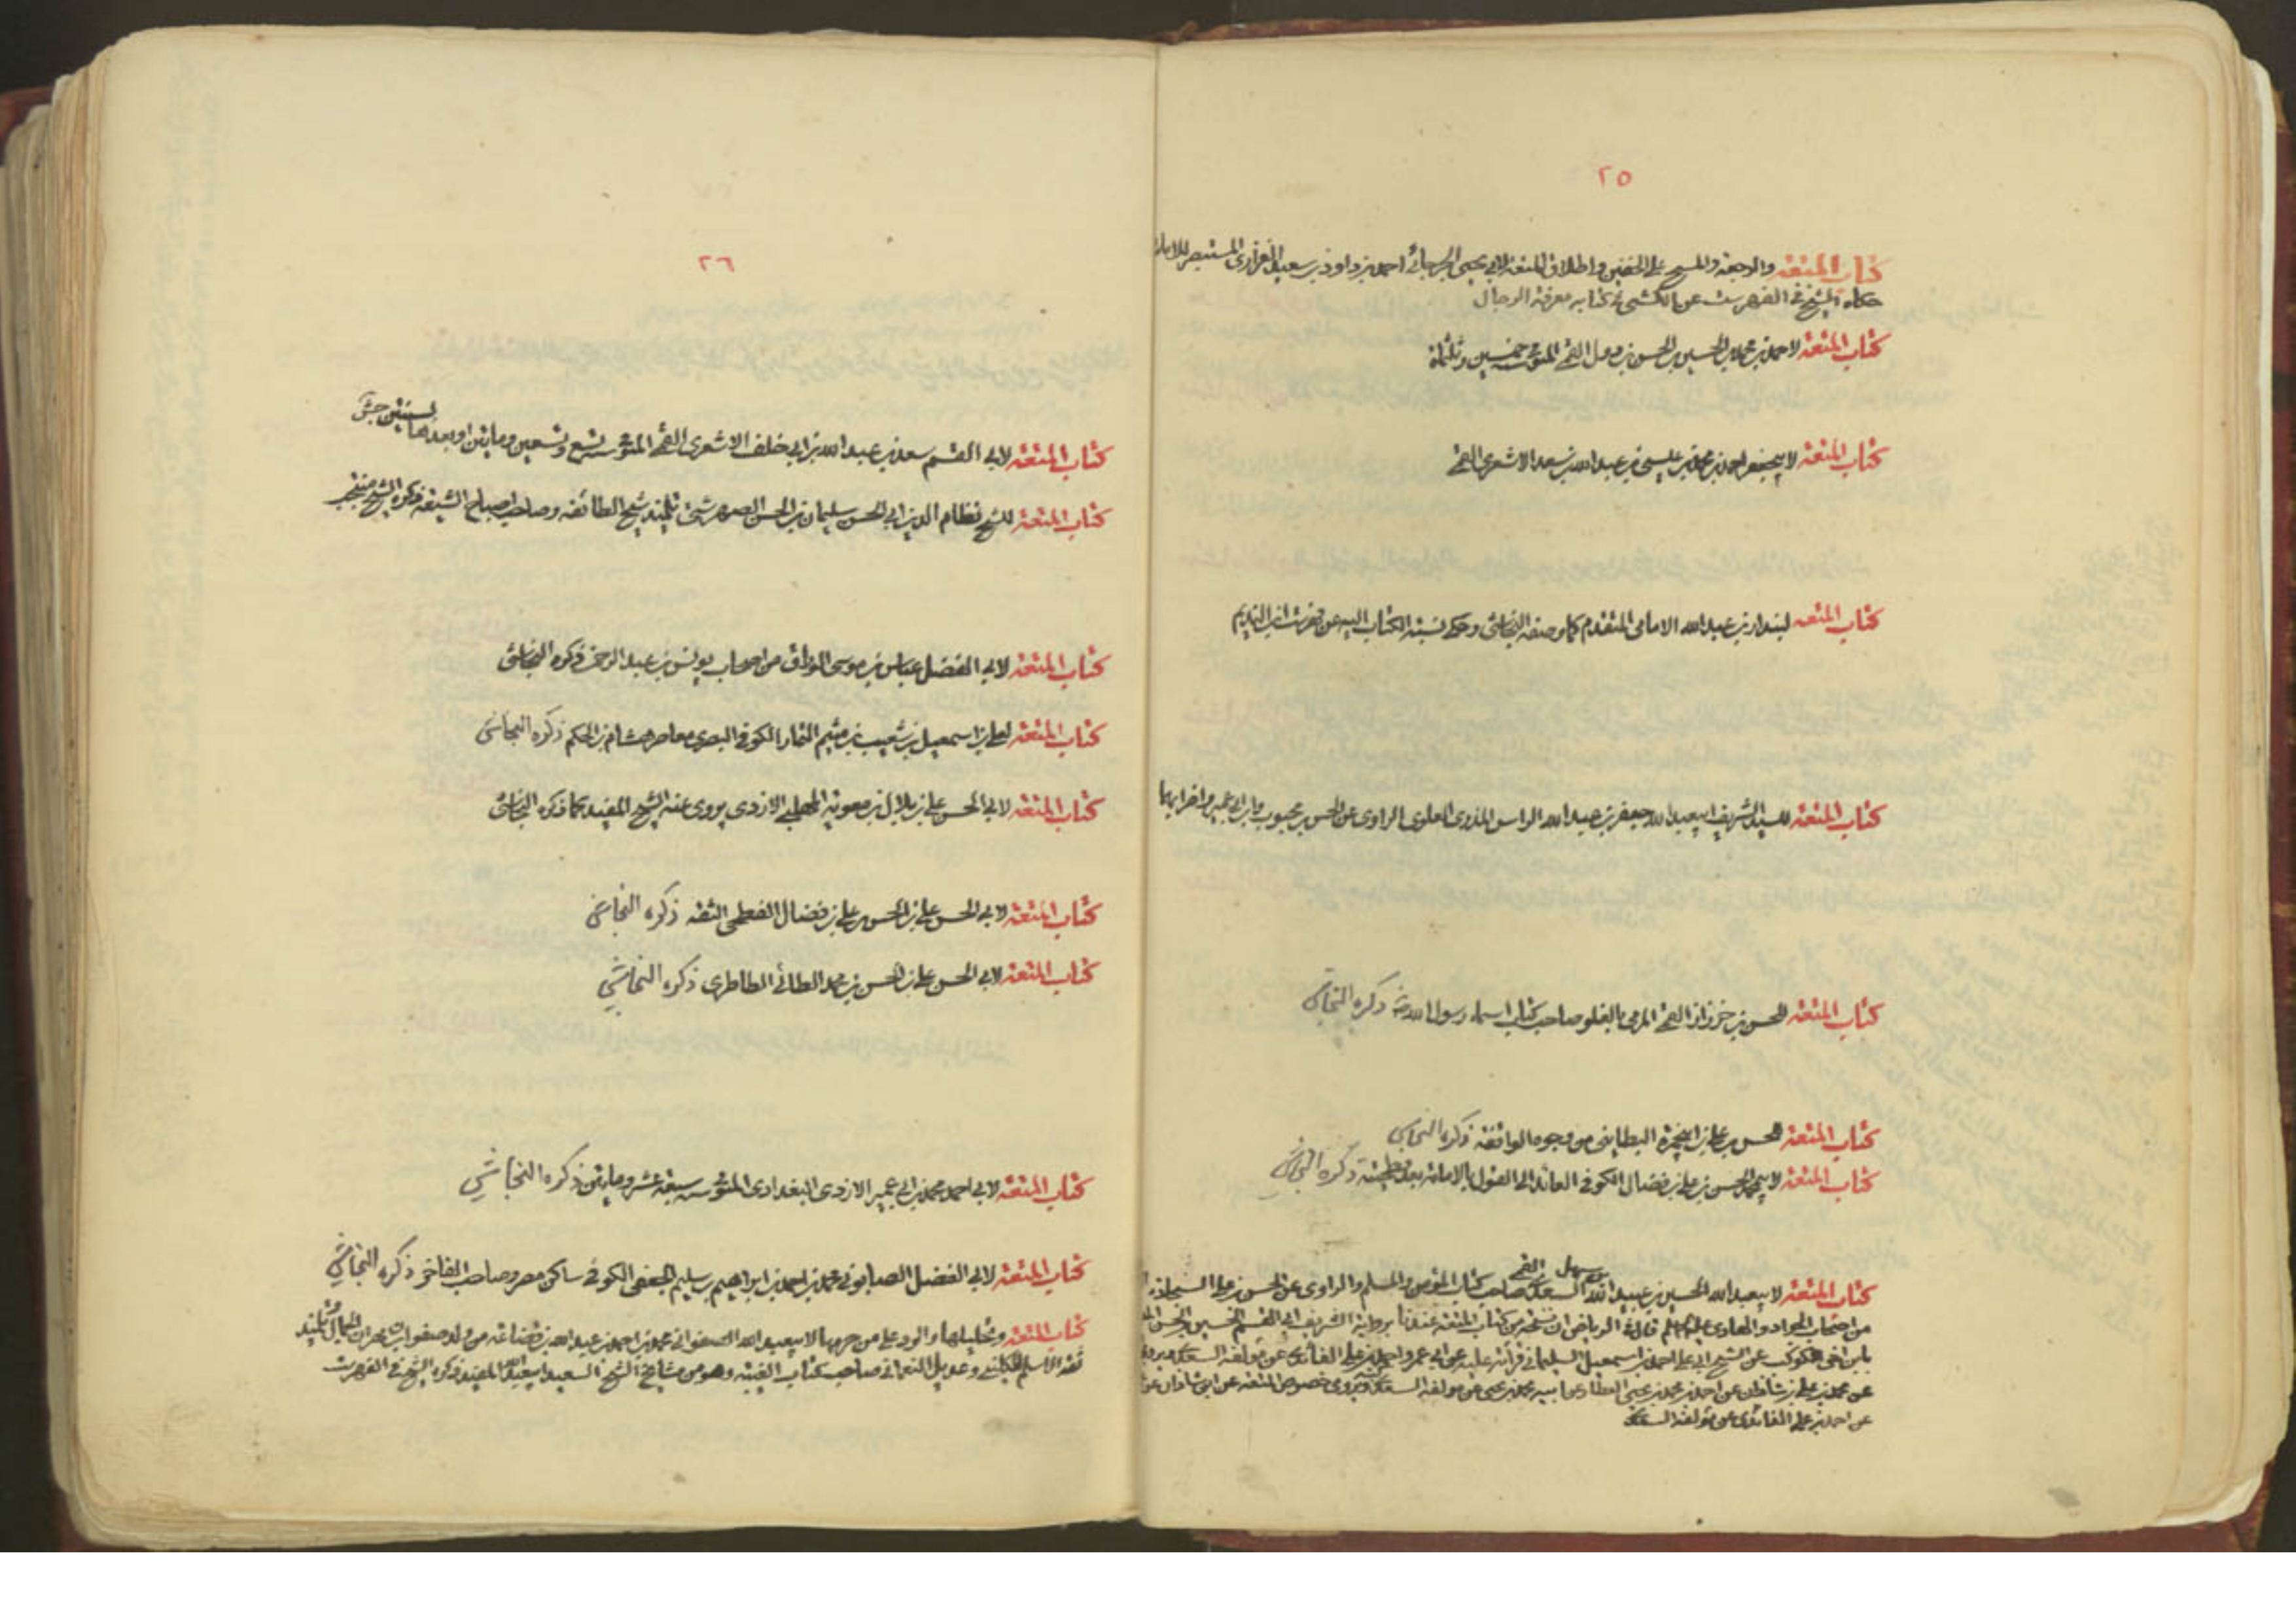 ٢٥
كتاب المتعة والرجعة والمسح على الخفين واطلاق المتعة لابي يحيى الجرجاني احمد بن داود بن سعيد الفزاري المستبصر للامامية
حكاه الشيخ في الفهرست عن الكشي في كتابه معرفة الرجال
كتاب المتعة لاحمد بن محمد بن الحسين بن الحسن بن دول القمي المتوفى سنة خمسين وثلثمائة
كتاب المتعة لابيجعفر احمد بن محمد بن عيسى بن عبد الله بن سعد الاشعري القمي
كتاب المتعه لبندار بن عبد الله الامامي المتقدم كما وصفه النجاشي وحكى نسبة الكتاب اليه عن فهرست ابن النديم
كتاب المتعة للسيد الشريف ابيعبد الله جعفر بن عبد الله الراس المذري العلوي الراوي عن الحسن بن محبوب وابن ابي عمير واضرابهما
كتاب المتعة للحسن بن خرزاذ القمي المرمي بالغلو صاحب كتاب اسماء رسول الله ص ذكره النجاشي
كتاب المتعة للحسن بن علي بن ابيحمزة البطايني من وجوه الواقفة ذكره النجاشي
كتاب المتعة لابيمحمد الحسن بن علي بن فضال الكوفي العائد الى القول بالامامة بعد فطحيته ذكره النجاشي
كتاب المتعة لابيعبد الله الحسين بن عبيد الله بن سهل السعدي القمي صاحب كتاب المؤمن والمسلم والراوي عن الحسن بن علي السجادة
من اصحاب الجواد والهادي عليهم السلم قال في الرياض ان نسخة من كتاب المتعة عندنا برواية الشريف ابي القسم الحسين بن الحسن
بابن اخي الكوكب عن الشيخ ابي علي احمد بن اسمعيل السليماني قرأته عليه عن ابي عمرو احمد بن علي الفائدي عن مؤلفه السعدي ويروي
عن محمد بن علي بن شاذان عن احمد بن محمد بن يحيى العطار عن ابيه محمد بن يحيى عن مؤلفه السعدي ويروي خصوص المتعة عن ابن شاذان عن
عن احمد بن علي الفائدي عن مؤلفه السعدي
٢٦
كتاب المتعة لابي القسم سعد بن عبد الله بن ابي خلف الاشعري القمي المتوفى سنة تسع وتسعين ومايتين او بعدها بسنتين جش
كتاب المتعة للشيخ نظام الدين ابي الحسن سليمان بن الحسن الصهرشتي تلميذ شيخ الطائفة وصاحب اصباح الشيعة ذكره الشيخ منتجب
كتاب المتعة لابي الفضل عباس بن موسى الوراق من اصحاب يونس بن عبد الرحمن ذكره النجاشي
كتاب المتعة لعلي بن اسمعيل بن شعيب بن ميثم التمار الكوفي البصري معاصر هشام بن الحكم ذكره النجاشي
كتاب المتعة لابي الحسن علي بن بلال بن معوية المهلبي الازدي يروي عنه الشيخ المفيد كما ذكره النجاشي
كتاب المتعة لابي الحسن علي بن الحسن بن علي بن فضال الفطحي الثقة ذكره النجاشي
كتاب المتعة لابي الحسن علي بن الحسن بن محمد الطائي الطاطري ذكره النجاشي
كتاب المتعة لابي احمد محمد بن ابي عمير الازدي البغدادي المتوفى سنة سبعة عشر ومايتين ذكره النجاشي
كتاب المتعة لابي الفضل الصابوني محمد بن احمد بن ابراهيم بن سليم الجعفي الكوفي ساكن مصر وصاحب الفاخر ذكره النجاشي
كتاب المتعة وتحليلها والرد على من حرمها لابيعبد الله الصفواني محمد بن احمد بن عبد الله بن قضاعة من ولد صفوان بن مهران الجمال وتلميذ
ثقة الاسلام الكليني وعديل النعماني صاحب كتاب الغيبة وهو من مشايخ الشيخ السعيد ابيعبد الله المفيد ذكره الشيخ في الفهرست